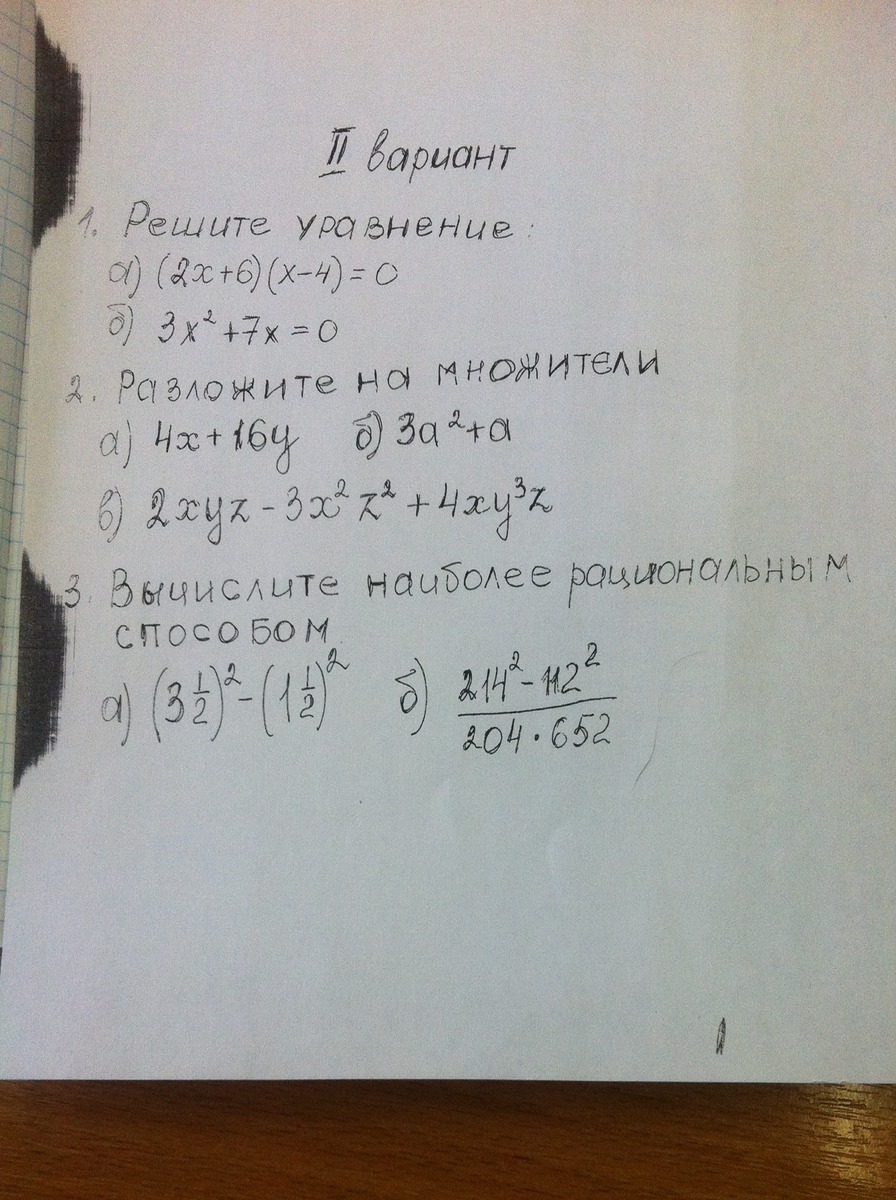 II вариант
1. Решите уравнение:
а) (2x+6)(x-4)=0
б) 3x²+7x=0
2. Разложите на множители
а) 4x+16y б) 3a²+a
в) 2xyz-3x²z²+4xy³z
3. Вычислите наиболее рациональным
способом
а) (3 1/2)²-(1 1/2)² б) (214²-112²)/(204·652)